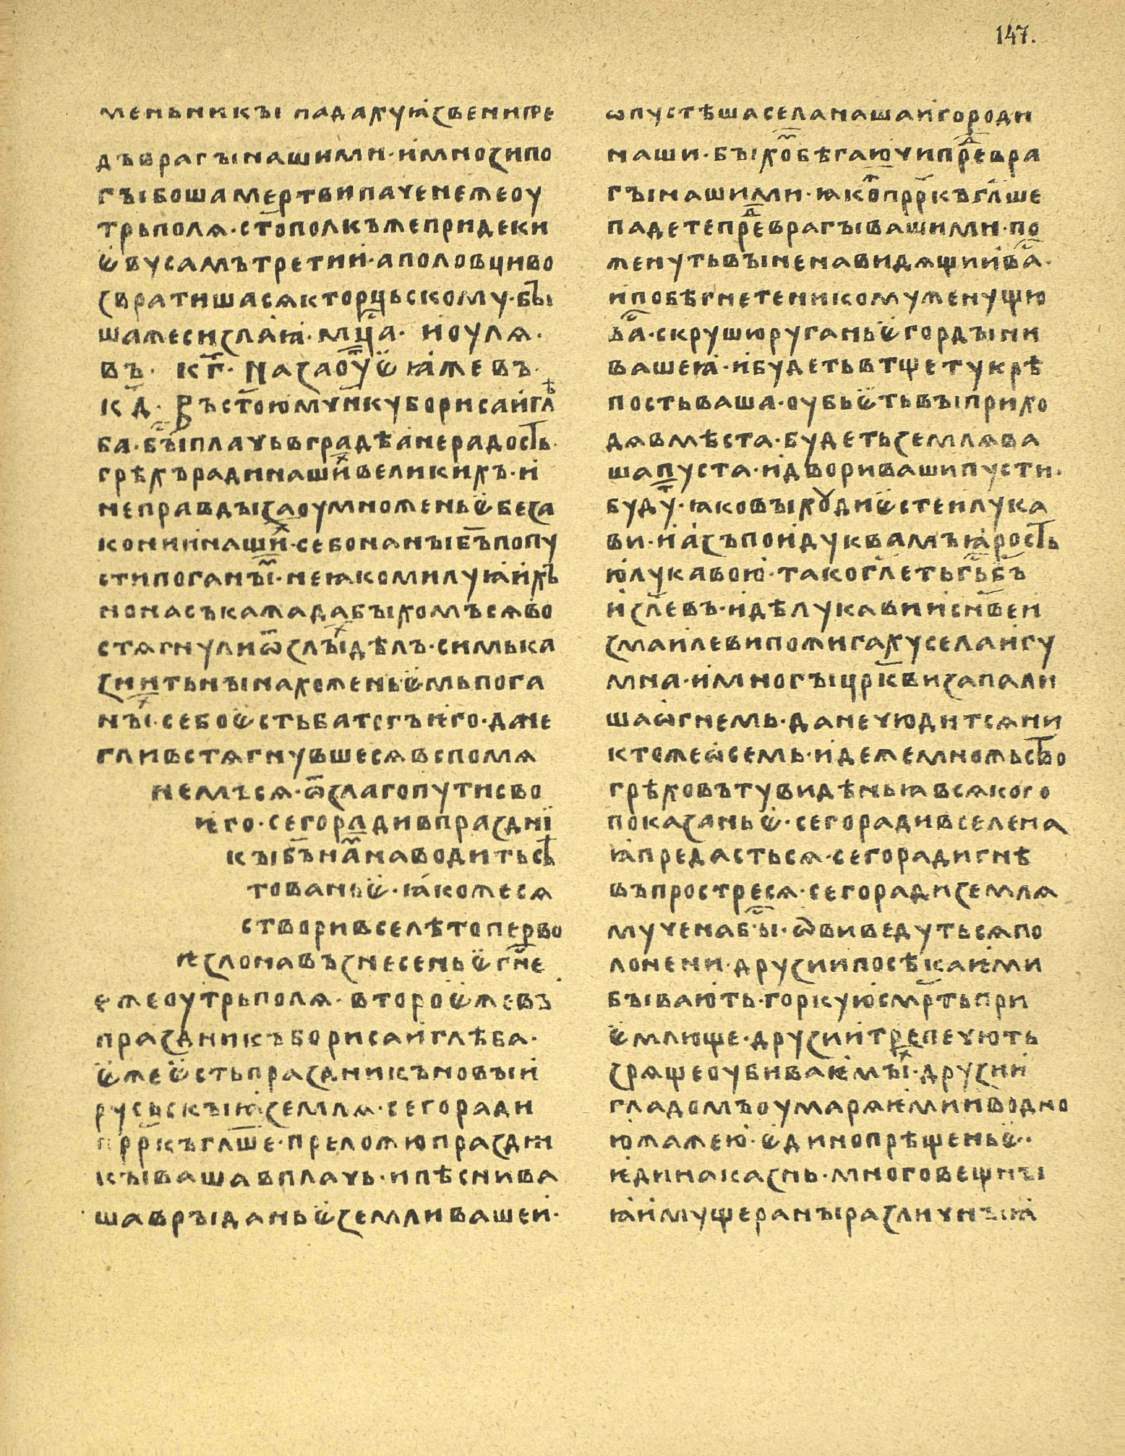 147.
меньникъı падахуꙗзвенипре
дъврагъıнашими·имнозипо
гъıбошамертвипаченежеоу
трьполѧ·стополкъжепридеки
ѥвусамътретии·аполовциво
звратишасѧкторцьскому·бъı
шажесизлаꙗ·мц҃а·июулѧ·
въ·к҃г·Назаоу҃ѥꙗжевъ·
к҃д·Въст҃оюмун҃куборисаигл҃ѣ
ба·бъıсплачьвградѣанерадость·
грѣхърадинашихвеликихъ·и
неправдъıзаоумноженьѥбеза
конииинаших·себонанъıб҃ъпопу
стипоганъıм·неꙗкомилуꙗихъ
нонасъкажадабъıхомъсѧво
стѧгнулиѿзлъıхдѣлъ·симька
знитьнъıнахоженьѥмьпога
нъıх·себоѥстьбатогъиго·дане
гливъстѧгнувшесѧвспомѧ
немъсѧ·ѿзлагопутисво
иго·сегорадивпраздні
къıб҃ънамнаводитьсѣ
тованьѥ·ꙗкожесѧ
створивселѣтоперво
излонавъзнесеньѥг҃не
ежеоутрьполѧ·второѥжевъ
праздникъборисаиглѣба·
ѥжеѥстьпраздникъновъıи
русьскъıꙗземлѧ·сегоради
прр҃къгл҃ше·преложюпраздни
къıвашавплачь·ипѣснива
шавръıданьѥземливашеи·
ѡпустѣшаселанашаигороди
наши·бъıхомбѣгаючипредвра
гъıнашими·ꙗкожпрр҃къгл҃ше
падетепредврагъıвашими·по
женутьвъıненавидѧщиивас·
ипобѣгнетеникомуженущю
вас·скрушюруганьѥгордъıни
вашеꙗ·ибудетьвтщетукрѣ
постьваша·оубьѥтьвъıприхо
дѧвмѣста·будетьземлѧва
шапуста·идворивашипусти·
будут·ꙗковъıхудиѥстеилука
ви·иазъпоидуквамъꙗрость
юлукавою·такогл҃етьг҃ьб҃ъ
изл҃евъ·идѣлукавииисн҃веи
змаилевипожигахуселаигу
мна·имногъıцр҃квизапали
шаѡгнемь·данечюдитсѧни
ктожеѡсемь·идежемножьство
грѣховътувидѣньꙗвсѧкого
показаньѥ·сегорадивселена
ꙗпредастьсѧ·сегорадигнѣ
въпростресѧ·сегорадиземлѧ
мученабъıс·ѿвиведутьсѧпо
лонени·друзиипосѣкаиꙗми
бъıвають·горкуюсмртьпри
ѥмлюще·друзиитрепечють
зрѧщеоубиваѥмъıх·друзии
гладомъоумарѧиꙗмииводно
южажею·ѥдинопрѣщеньѥ··
идинаказнь·многовещнъı
ꙗимущеранъıразличнъıꙗ